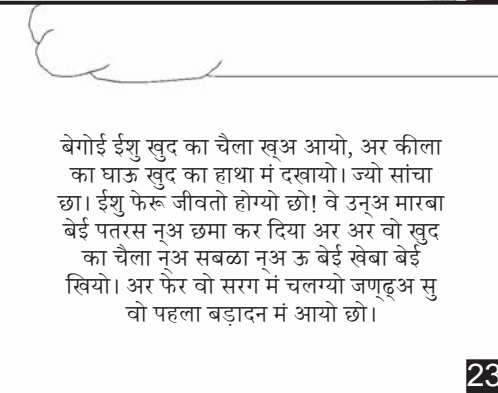 बेगोई ईशु खुद का चैला ख्अ आयो, अर कीला
का घाऊ खुद का हाथा मं दखायो। ज्यो सांचा
छा। ईशु फेरू जीवतो होग्यो छो! वे उन्अ मारबा
बेई पतरस न्अ छमा कर दिया अर अर वो खुद
का चैला न्अ सबळा न्अ ऊ बेई खेबा बेई
खियो। अर फेर वो सरग मं चलग्यो जण्ढ्अ सु
वो पहला बड़ादन मं आयो छो।
23